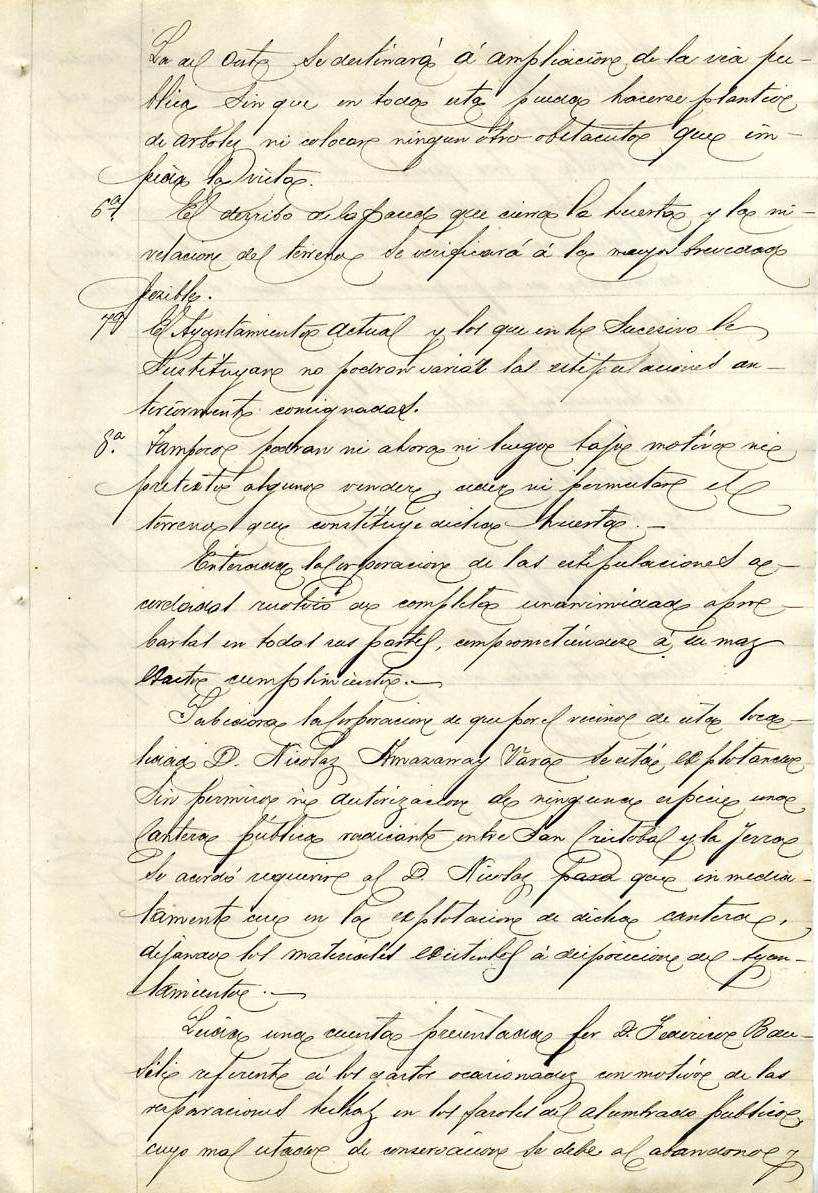 La del Oeste se destinará á ampliacion de la via pu-
blica sin que en toda esta pueda hacerse plantios
de arboles ni colocar ningun otro obstaculo que im-
pida la vista.
6ª El derribo de la pared que cierra la huerta y la ni-
velacion del terreno se verificará á la mayor brevedad
posible.
7ª El Ayuntamiento actual y los que en lo sucesivo le
sustituyan no podran variar las estipulaciones an-
teriormente consignadas.
8ª Tampoco podran ni ahora ni luego bajo motivo ni
pretexto alguno vender, ceder ni permutar el
terreno que constituye dicha huerta.—
Enterada la Corporacion de las estipulaciones a-
cordadas resolvió de completa unanimidad apro-
barlas en todas sus partes, comprometiendose á su mas
exacto cumplimiento.—
Sabedora la Corporacion de que por el vecino de esta loca-
lidad D. Nicolas Amazarray Vara se está explotando
sin permiso ni autorizacion de ninguna especie una
cantera pública radicante entre San Cristobal y la
se acordó requerir al D. Nicolas para que inmedia-
tamente cese en la explotacion de dicha cantera,
dejando los materiales existentes á disposicion del Ayun-
tamiento.—
Leida una cuenta presentada por D. Federico
referente á los gastos ocasionados con motivo de las
reparaciones hechas en los faroles del alumbrado público,
cuyo mal estado de conservacion se debe al abandono y